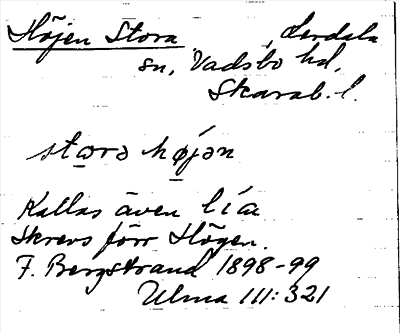 Höjen Stora, Lerdala
sn, Vadsbo hd,
Skarab. l.
stərə hǿjən
Kallas även lía
Skrevs förr Högen.
F. Bergstrand 1898-99
Ulma 111:321